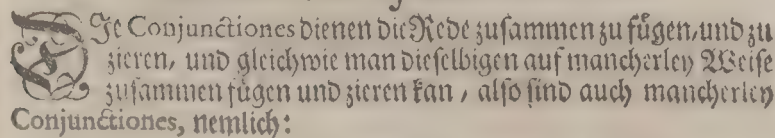 DJe Conjunctiones dienen die Rede zusammen zu fügen, und zu
zieren, und gleichwie man dieselbigen auf mancherley Weise
zusammen fügen und zieren kan / also sind auch mancherley
Conjunctiones, nemlich: